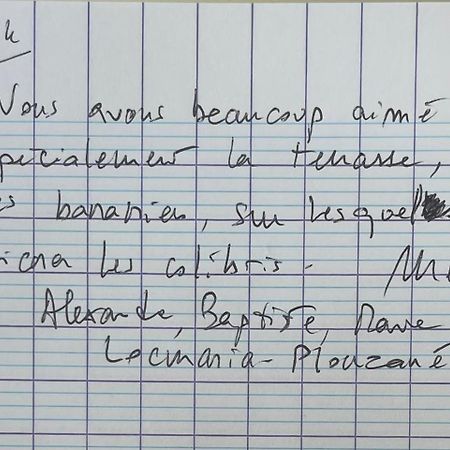 Nous avons beaucoup aimé
pécialement la terrasse,
s bananiers, sur lesquel
les colibris -
Alexandre, Baptiste,
Locmaria-Plouzané